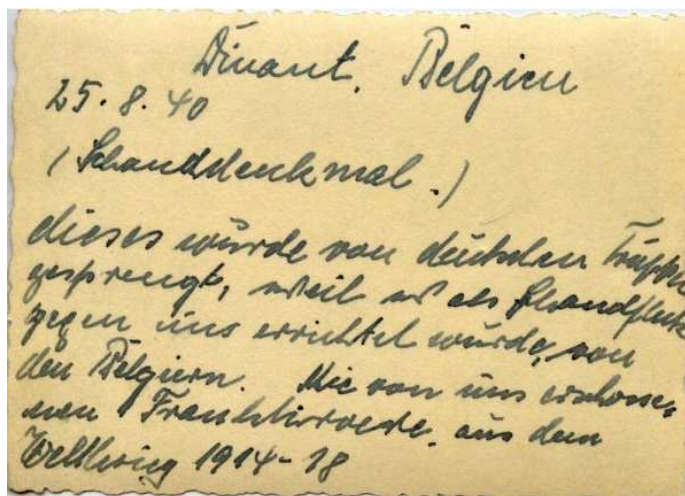 Dinant. Belgien
25.8.40
(Schanddenkmal.)
dieses wurde von deutschen Truppen
gesprengt, weil es als Schandfleck
gegen uns errichtet wurde, von
den Belgiern. Die von uns erschosse-
nen aus dem
Weltkrieg 1914-18